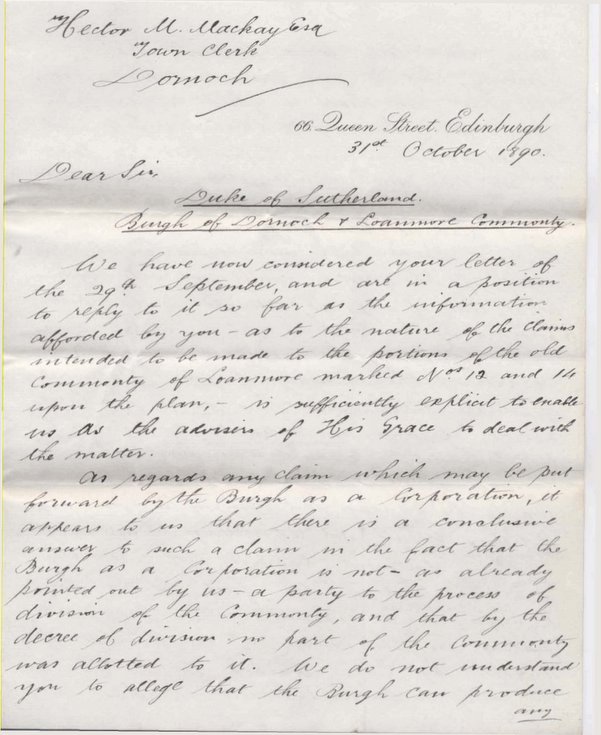 Hector M. Mackay Esq
Town Clerk
Dornoch
66 Queen Street, Edinburgh
31st October 1890.
Dear Sir,
Duke of Sutherland.
Burgh of Dornoch & Loanmore Commonty.
We have now considered your letter of
the 29th September, and are in a position
to reply to it so far as the information
afforded by you – as to the nature of the claims
intended to be made to the portions of the old
Commonty of Loanmore marked Nos 12 and 14
upon the plan, – is sufficiently explicit to enable
us as the advisers of His Grace to deal with
the matter.
As regards any claim which may be put
forward by the Burgh as a Corporation, it
appears to us that there is a conclusive
answer to such a claim in the fact that the
Burgh as a Corporation is not – as already
pointed out by us – a party to the process of
division of the Commonty, and that by the
decree of division no part of the Commonty
was allotted to it. We do not understand
you to allege that the Burgh can produce
any